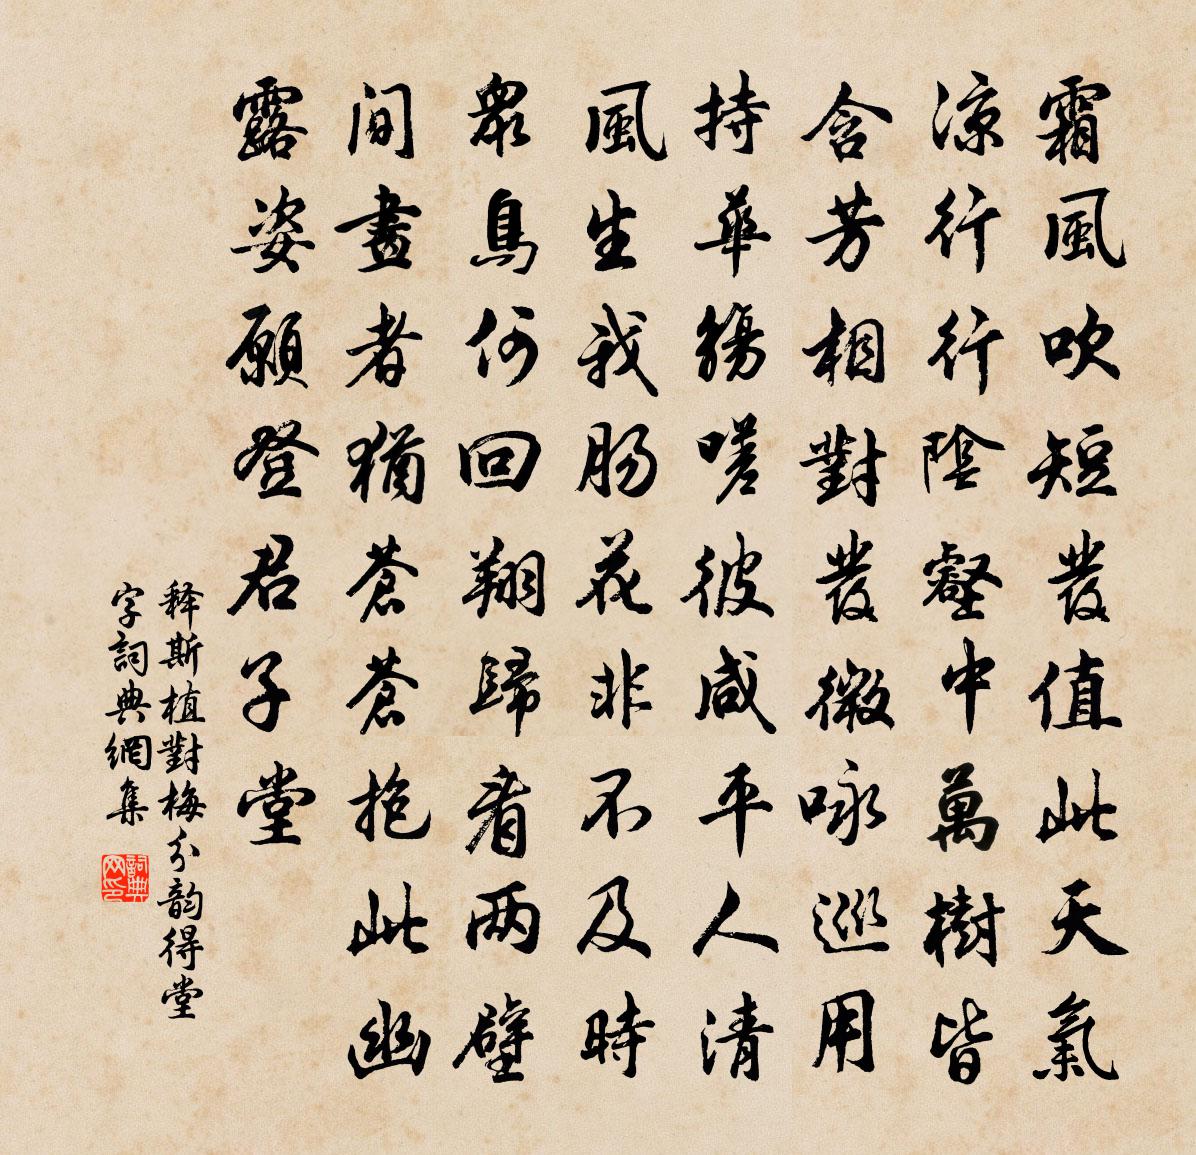 霜風吹短發值此天氣
涼行行陰壑中萬樹皆
含芳相對發微咏巡用
持華觴嗟彼咸平人清
風生我肠花非不及時
眾鳥何回翔歸看两壁
間畫者猶蒼蒼抱此幽
露姿願登君子堂
释斯植對梅分韵得堂
字詞典網集
詞典网印